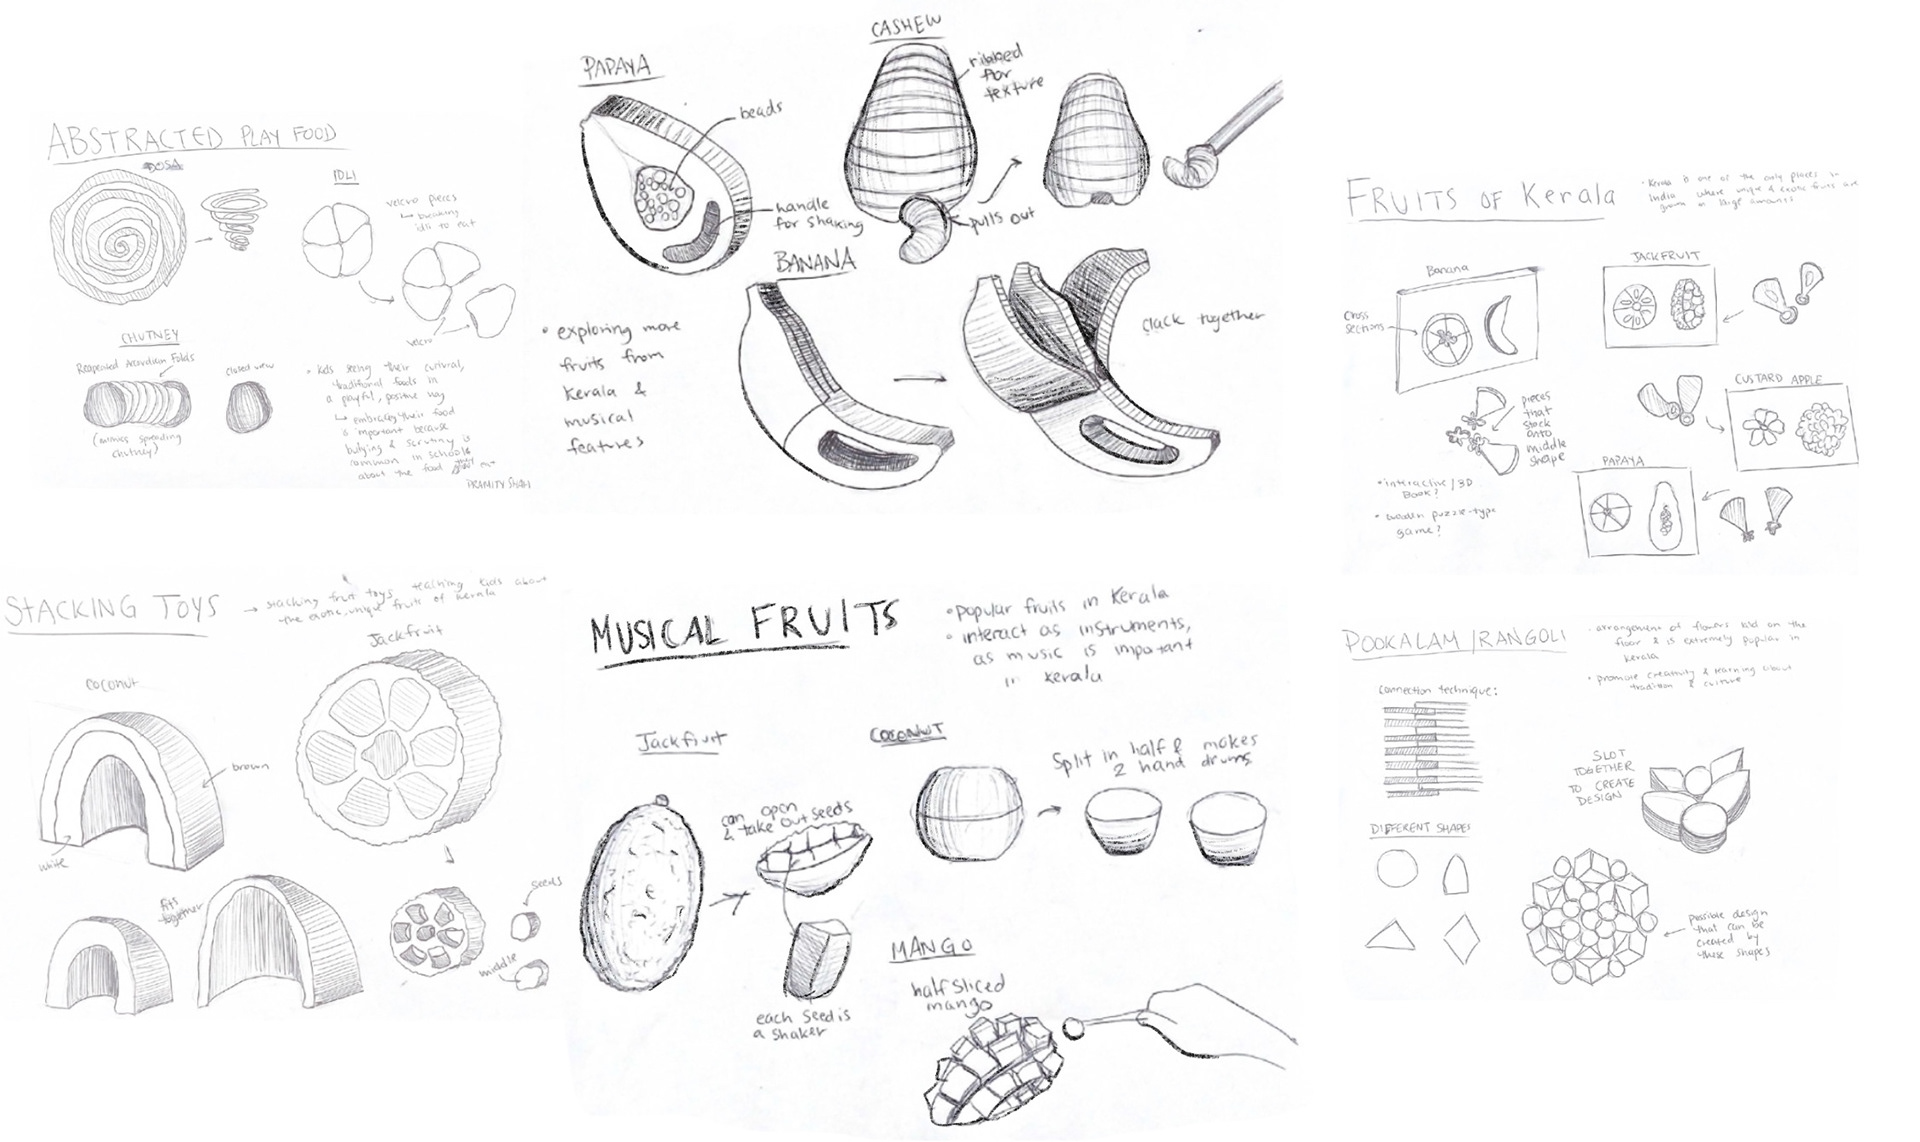 ABSTRACTED PLAY FOOD
DOSA
IDLI
velcro pieces
↳ breaking
idli to eat
velcro
CHUTNEY
Reapeated Accordian Folds
closed view
(mimics spreading
chutney)
• kids seeing their cultural,
traditional foods in
a playful, positive way
↳ embracing their food
is important because
bullying & scrutiny is
common in schools
about the food they eat
PRAMITY SHAH
PAPAYA
beads
handle
for shaking
CASHEW
ribbed
for
texture
pulls out
BANANA
clack together
• exploring more
fruits from
Kerala &
musical
features
FRUITS OF Kerala
• Kerala is one of the only places in
India where unique & exotic fruits are
grown in large amounts
Banana
cross
sections
JACKFRUIT
CUSTARD APPLE
PAPAYA
pieces
that
stack
onto
middle
shape
• interactive / 3D
Book?
• wooden puzzle-type
game?
STACKING TOYS
→ stacking fruit toys teaching kids about
the exotic, unique fruits of Kerala
coconut
brown
white
Jackfruit
fits
together
seeds
middle
MUSICAL FRUITS
• popular fruits in Kerala
• interact as instruments,
as music is important
in Kerala
Jackfruit
can open
& take out seeds
each seed is
a shaker
COCONUT
Split in half & makes
2 hand drums
MANGO
half sliced
mango
POOKALAM / RANGOLI
• arrangement of flowers laid on the
floor & is extremely popular in
Kerala
• promote creativity & learning about
tradition & culture
Connection technique:
SLOT
TOGETHER
TO CREATE
DESIGN
DIFFERENT SHAPES
possible design
that can be
created by
these shapes